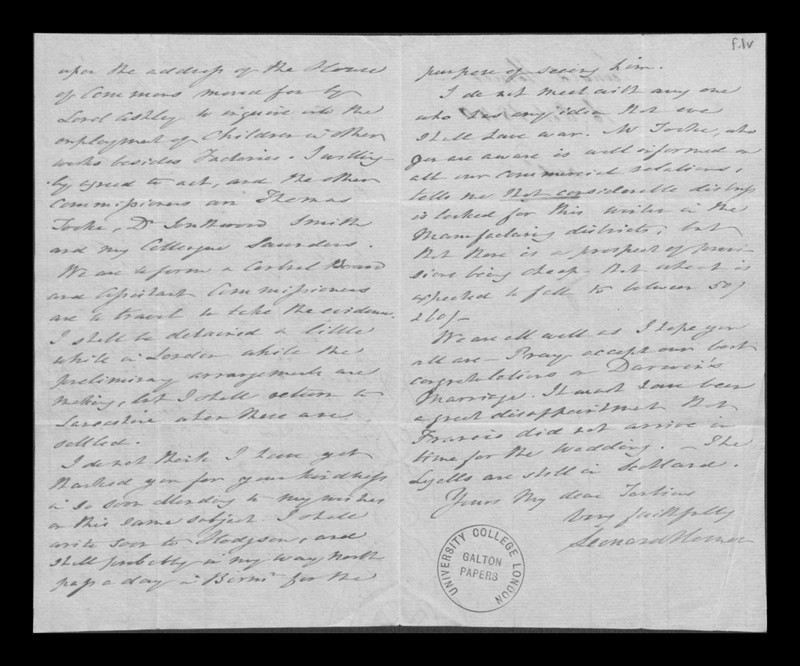 f.1v
upon the address of the House
of Commons moved for by
Lord Ashley to inquire into the
employment of Children in other
works besides Factories. I willing-
ly agreed to act, and the other
Commissioners are Thomas
Tooke, Dr Southwood Smith
and my Colleague Saunders.
We are to form a Central Board
and Assistant Commissioners
are to travel to take the evidence.
I shall be detained a little
while in London while the
preliminary arrangements are
making, but I shall return to
Lancashire when these are
settled.
I do not think I have yet
thanked you for your kindness
in so soon attending to my wishes
on this same subject. I shall
write soon to Hodgson, and
shall probably in my way North
pass a day in Birmm for the
purpose of seeing him.
I do not meet with any one
who has any idea that we
shall have war. Mr Tooke, who
you are aware is well informed on
all our commercial relations,
tells me that considerable distress
is looked for this winter in the
Manufacturing districts; but
that there is a prospect of provi-
sions being cheap - that wheat is
expected to fall to between 50/
& 60/-
We are all well as I hope you
all are - Pray accept our best
congratulations on Darwin's
Marriage. It must have been
a great disappointment that
Francis did not arrive in
time for the Wedding. - The
Lyells are still in Scotland.
Yours My dear
very faithfully
Leonard Horner
UNIVERSITY COLLEGE LONDON
GALTON
PAPERS